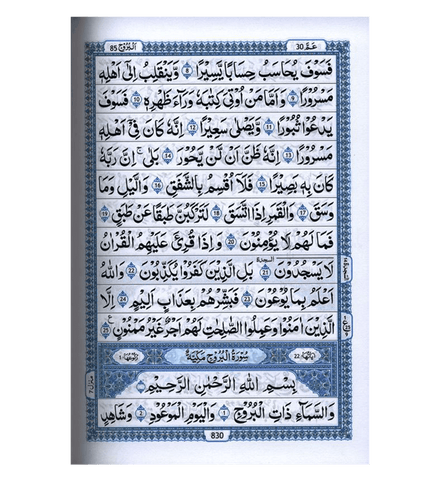 عَمَّ 30 اَلْبُرُوْج 85
فَسَوْفَ يُحَاسَبُ حِسَابًا يَّسِيْرًا 8 وَّيَنْقَلِبُ اِلٰٓى اَهْلِهٖ
مَسْرُوْرًا 9 وَاَمَّا مَنْ اُوْتِيَ كِتٰبَهٗ وَرَآءَ ظَهْرِهٖ 10 فَسَوْفَ
يَدْعُوْا ثُبُوْرًا 11 وَّيَصْلٰى سَعِيْرًا 12 اِنَّهٗ كَانَ فِيْٓ اَهْلِهٖ
مَسْرُوْرًا 13 اِنَّهٗ ظَنَّ اَنْ لَّنْ يَّحُوْرَ 14 بَلٰٓى اِنَّ رَبَّهٗ
كَانَ بِهٖ بَصِيْرًا 15 فَلَآ اُقْسِمُ بِالشَّفَقِ 16 وَالَّيْلِ وَمَا
وَسَقَ 17 وَالْقَمَرِ اِذَا اتَّسَقَ 18 لَتَرْكَبُنَّ طَبَقًا عَنْ طَبَقٍ 19
فَمَا لَهُمْ لَا يُؤْمِنُوْنَ 20 وَاِذَا قُرِئَ عَلَيْهِمُ الْقُرْاٰنُ
لَا يَسْجُدُوْنَ 21 السجدة بَلِ الَّذِيْنَ كَفَرُوْا يُكَذِّبُوْنَ 22 وَاللّٰهُ
اَعْلَمُ بِمَا يُوْعُوْنَ 23 فَبَشِّرْهُمْ بِعَذَابٍ اَلِيْمٍ 24 اِلَّا
الَّذِيْنَ اٰمَنُوْا وَعَمِلُوا الصّٰلِحٰتِ لَهُمْ اَجْرٌ غَيْرُ مَمْنُوْنٍ 25
اٰيَاتُهَا 22 سُوْرَةُ الْبُرُوْجِ مَكِّيَّةٌ رُكُوْعُهَا 1
بِسْمِ اللّٰهِ الرَّحْمٰنِ الرَّحِيْمِ
وَالسَّمَآءِ ذَاتِ الْبُرُوْجِ 1 وَالْيَوْمِ الْمَوْعُوْدِ 2 وَشَاهِدٍ
830